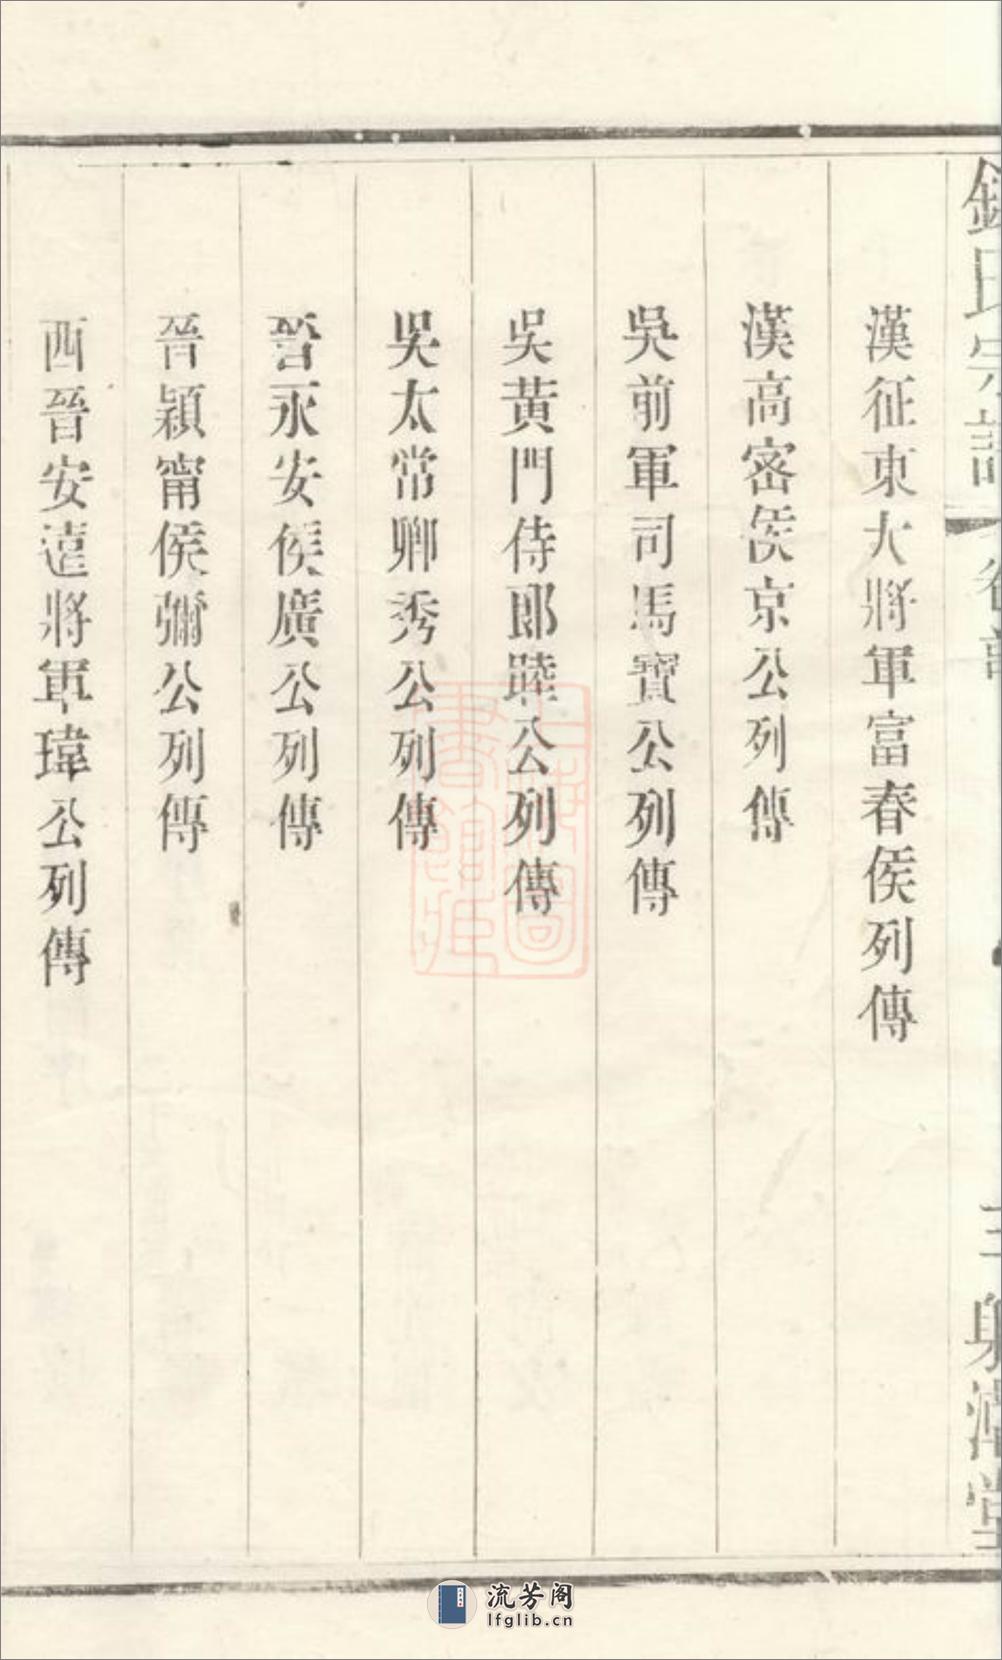 錢氏宗譜
三
射潮堂
漢征東大將軍富春侯列傳
漢高密侯京公列傳
吳前軍司馬寶公列傳
吳黃門侍郎睦公列傳
吳太常卿秀公列傳
晉永安侯廣公列傳
晉潁甯侯彌公列傳
西晉安遠將軍瑋公列傳
流芳阁
lfglib.cn